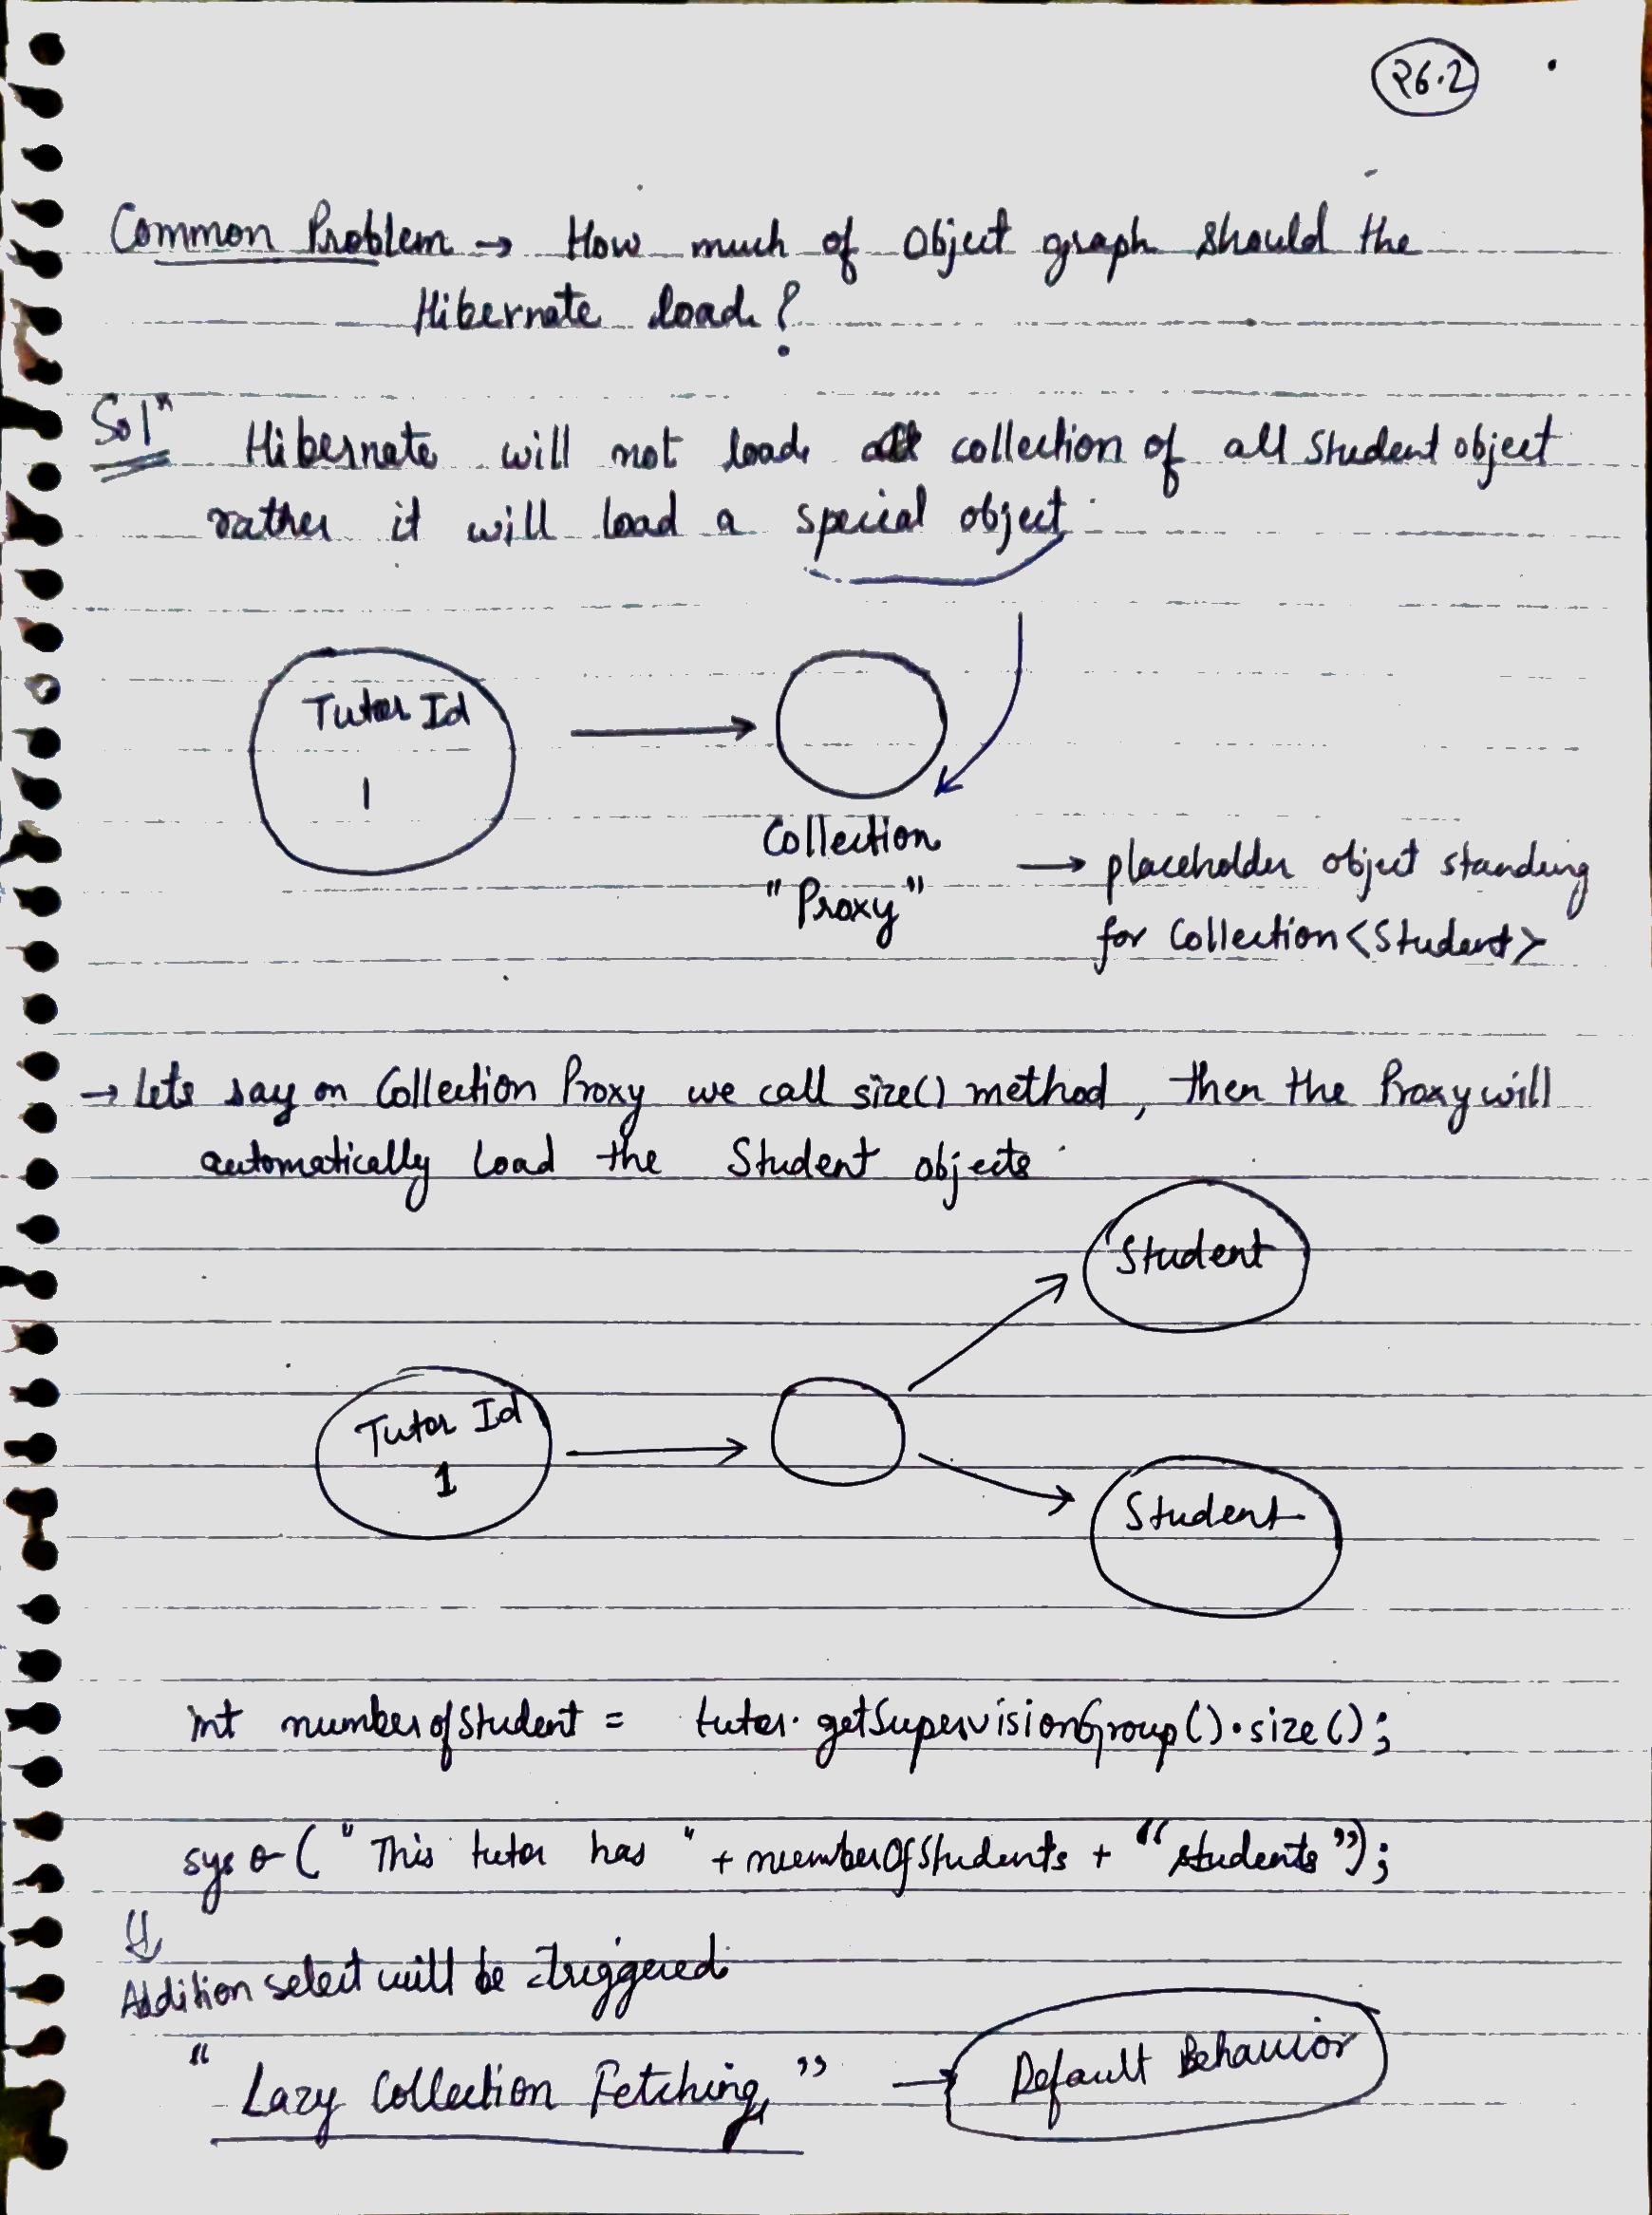 P6.2
Common Problem → How much of Object graph should the
Hibernate load?
Solⁿ Hibernate will not load collection of all Student object
rather it will load a special object.
Tutor Id
1
Collection
"Proxy"
→ placeholder object standing
for Collection<Student>
→ Lets say on Collection Proxy we call size() method, then the Proxy will
automatically load the Student objects.
Student
Tutor Id
1
Student
int numberofStudent = tutor.getSupervisionGroup().size();
syso("This tutor has " + numberOfStudents + "students");
⇓
Addition select will be triggered
"Lazy Collection Fetching" → Default Behavior